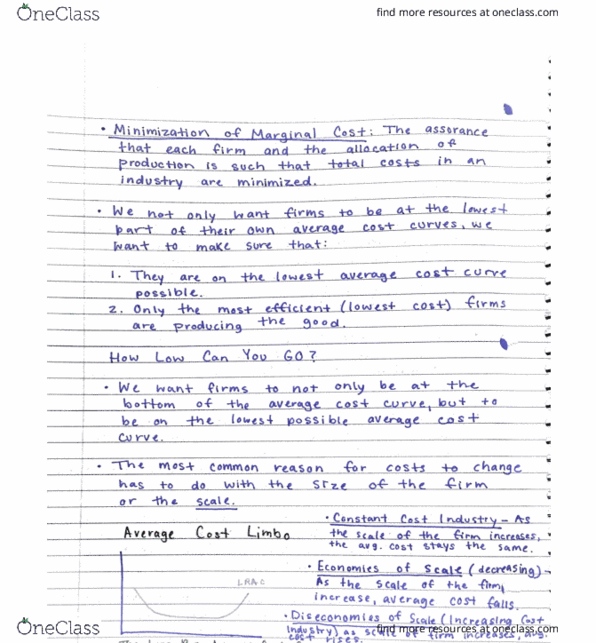 OneClass
find more resources at oneclass.com
• Minimization of Marginal Cost: The assurance
that each firm and the allocation of
production is such that total costs in an
industry are minimized.
• We not only want firms to be at the lowest
part of their own average cost curves, we
want to make sure that:
1. They are on the lowest average cost curve
possible.
2. Only the most efficient (lowest cost) firms
are producing the good.
How Low Can You GO?
• We want firms to not only be at the
bottom of the average cost curve, but to
be on the lowest possible average cost
curve.
• The most common reason for costs to change
has to do with the size of the firm
or the scale.
Average Cost Limbo
LRAC
• Constant Cost Industry - As
the scale of the firm increases,
the avg. cost stays the same.
• Economies of Scale (decreasing) -
As the scale of the firm
increase, average cost falls.
• Diseconomies of Scale (Increasing Cost
Industry) as scale of firm increases, avg.
cost rises.
OneClass
find more resources at oneclass.com